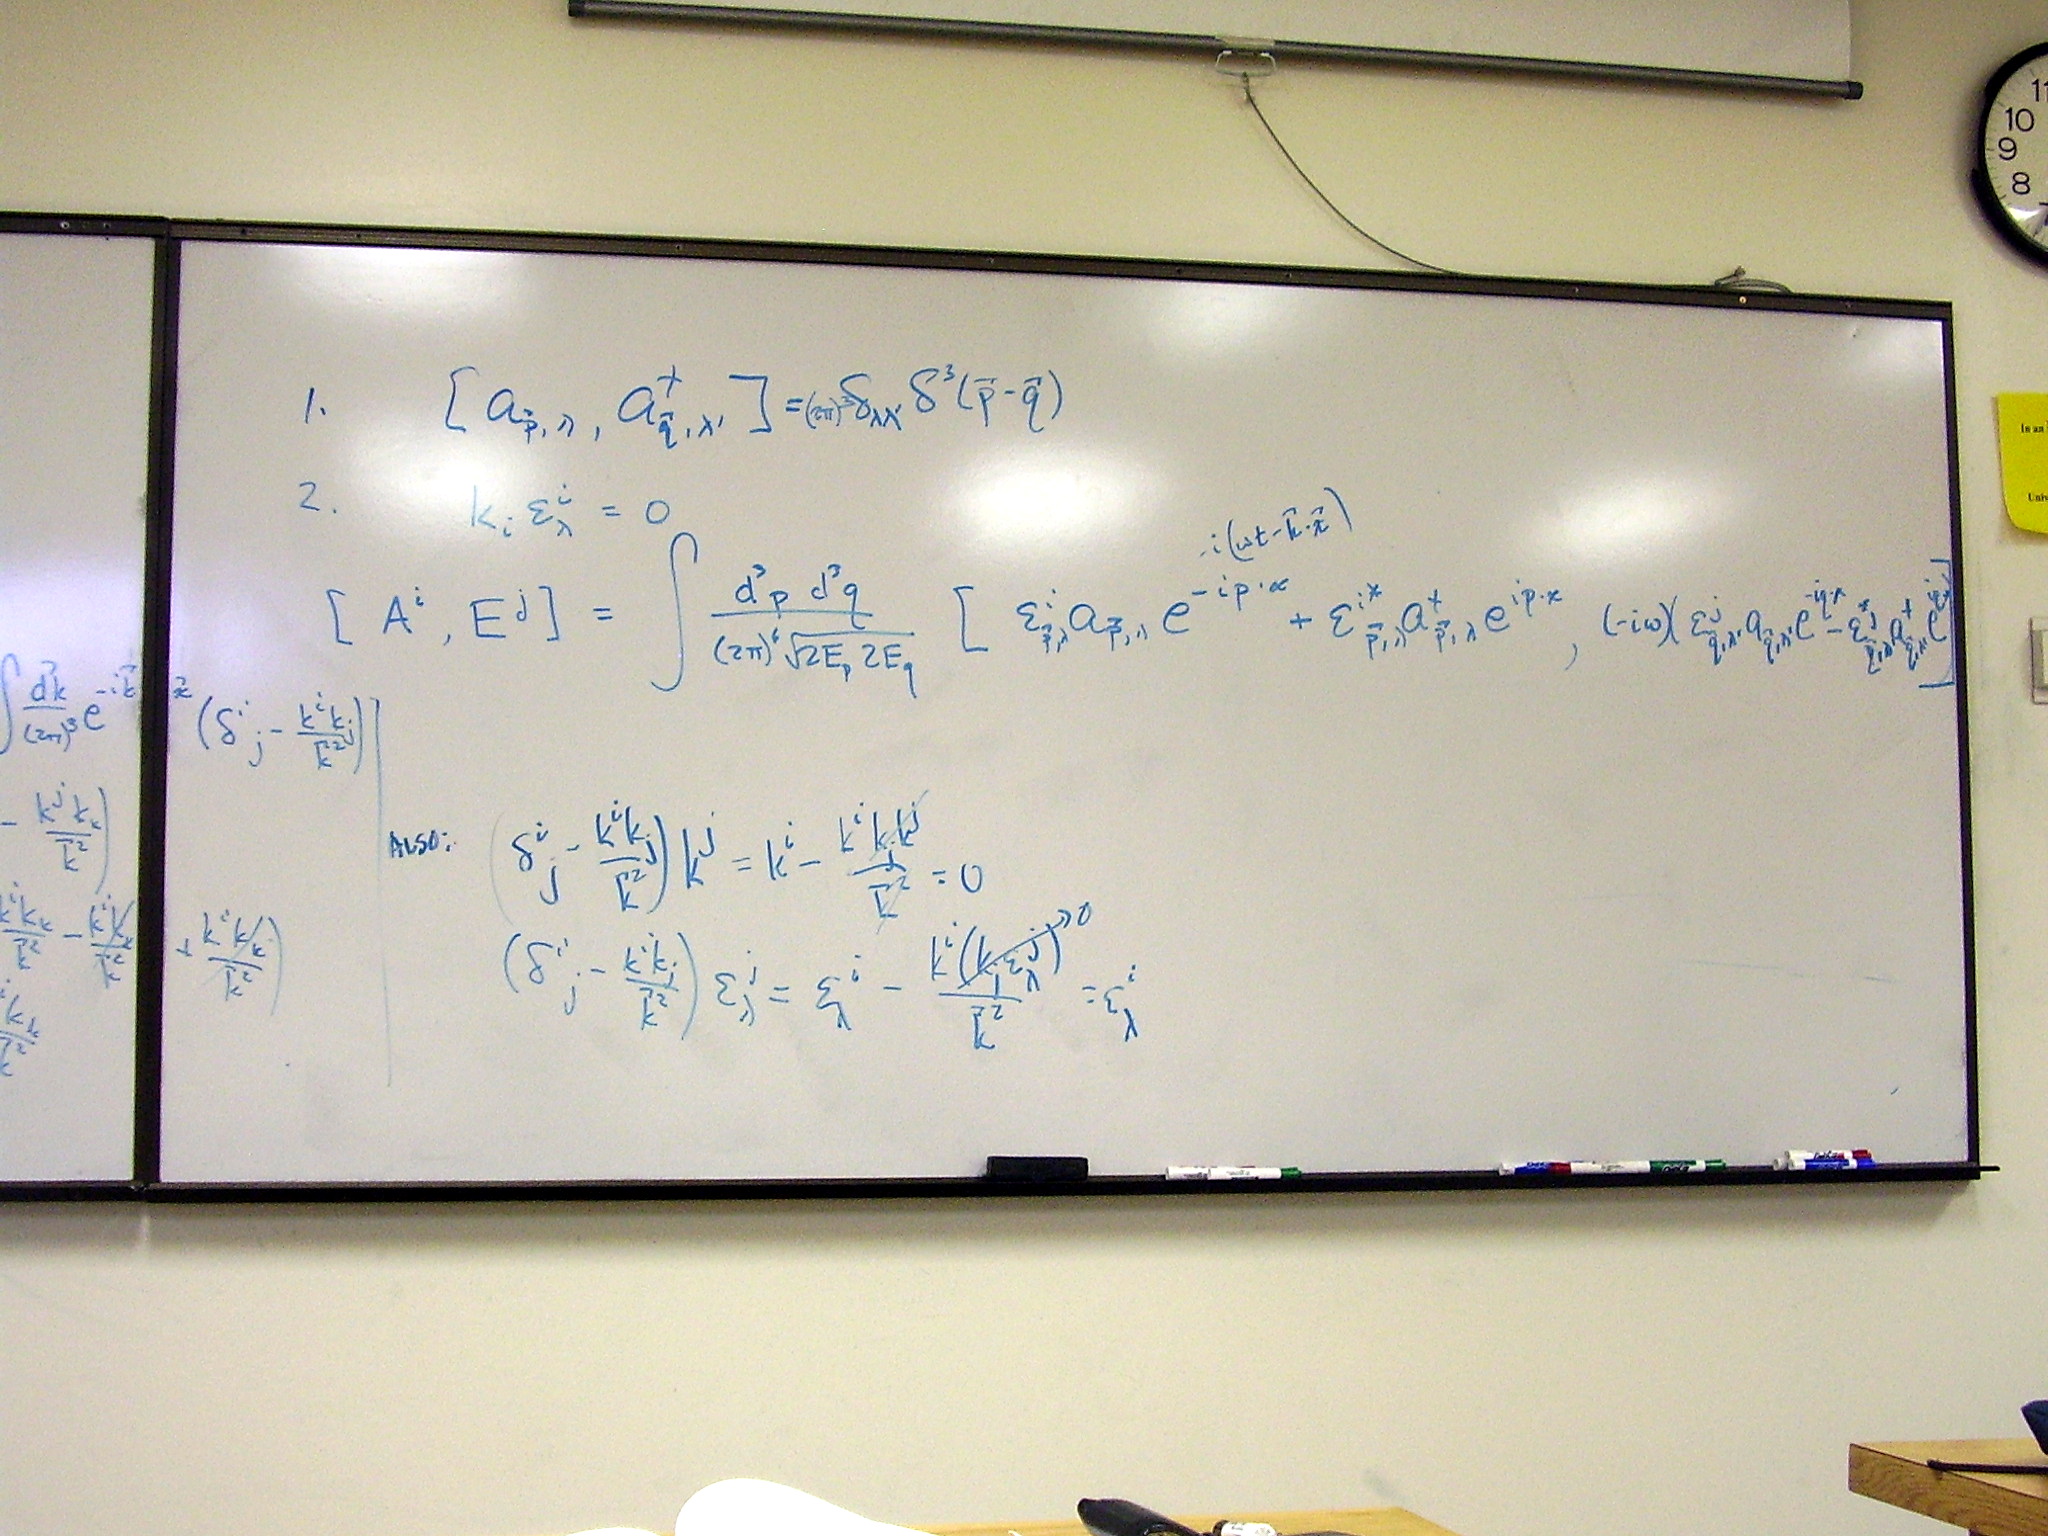 11
10
9
8
7
In an
Univ
1. [a_{\vec{p},λ}, a^†_{\vec{q},λ'}] = (2π)^3 δ_{λλ'} δ^3(\vec{p}-\vec{q})
2. k_i ε^i_λ = 0
-i(ωt-\vec{k}·\vec{x})
[A^i, E^j] = ∫ \frac{d^3p d^3q}{(2π)^6 √{2E_p 2E_q}} [ε^i_{\vec{p},λ} a_{\vec{p},λ} e^{-ip·x} + ε^{i*}_{\vec{p},λ} a^†_{\vec{p},λ} e^{ip·x}, (-iω)(ε^j_{\vec{q},λ'} a_{\vec{q},λ'} e^{-iq·x} - ε^{j*}_{\vec{q},λ'} a^†_{\vec{q},λ'} e^{iq·x}]
∫ \frac{d^3k}{(2π)^3} e^{-i\vec{k}·\vec{x}} (δ^i_j - \frac{k^i k_j}{\vec{k}^2})
- \frac{k^j k_k}{\vec{k}^2})
\frac{k^i k_k}{\vec{k}^2} - \frac{k^i k_k}{\vec{k}^2} + \frac{k^i k_k}{\vec{k}^2})
\frac{k^i k_k}{\vec{k}^2}
ALSO: (δ^i_j - \frac{k^i k_j}{\vec{k}^2}) k^j = k^i - \frac{k^i k_j k^j}{\vec{k}^2} = 0
(δ^i_j - \frac{k^i k_j}{\vec{k}^2}) ε^j_λ = ε^i_λ - \frac{k^i (k_j ε^j_λ)→0}{\vec{k}^2} = ε^i_λ